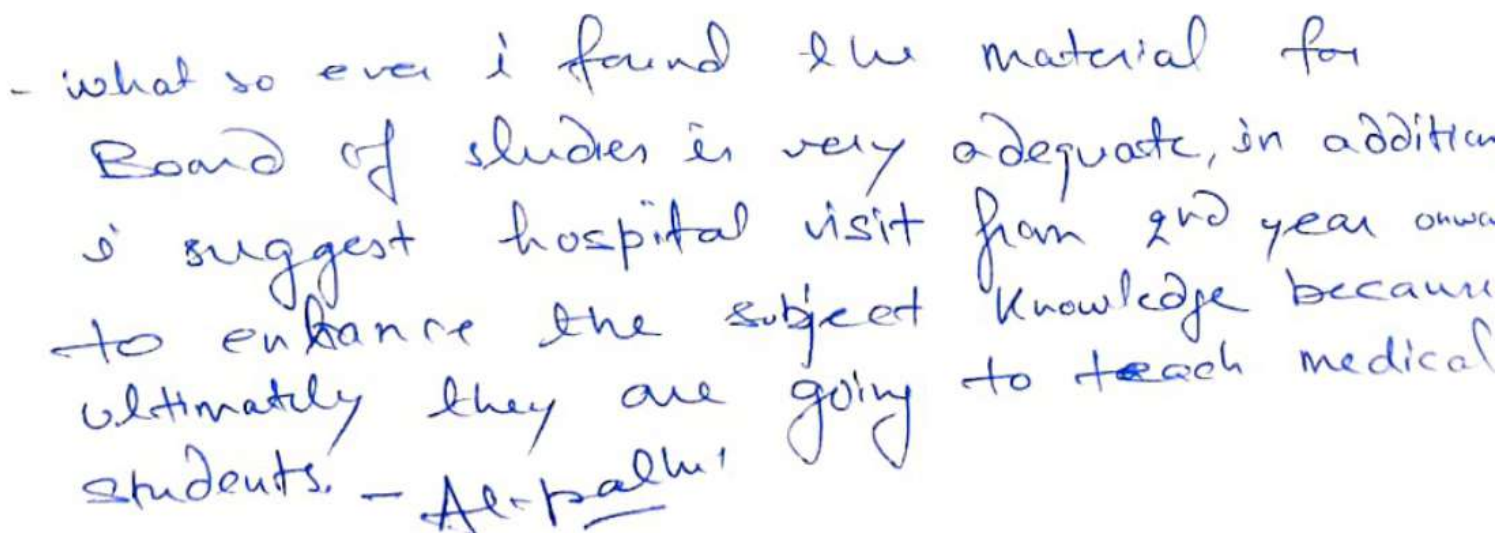 - what so ever i found the material for
Board of studies is very adequate, in addition
i suggest hospital visit from 2nd year onwa
to enhance the subject knowledge because
ultimately they are going to teach medical
students. -